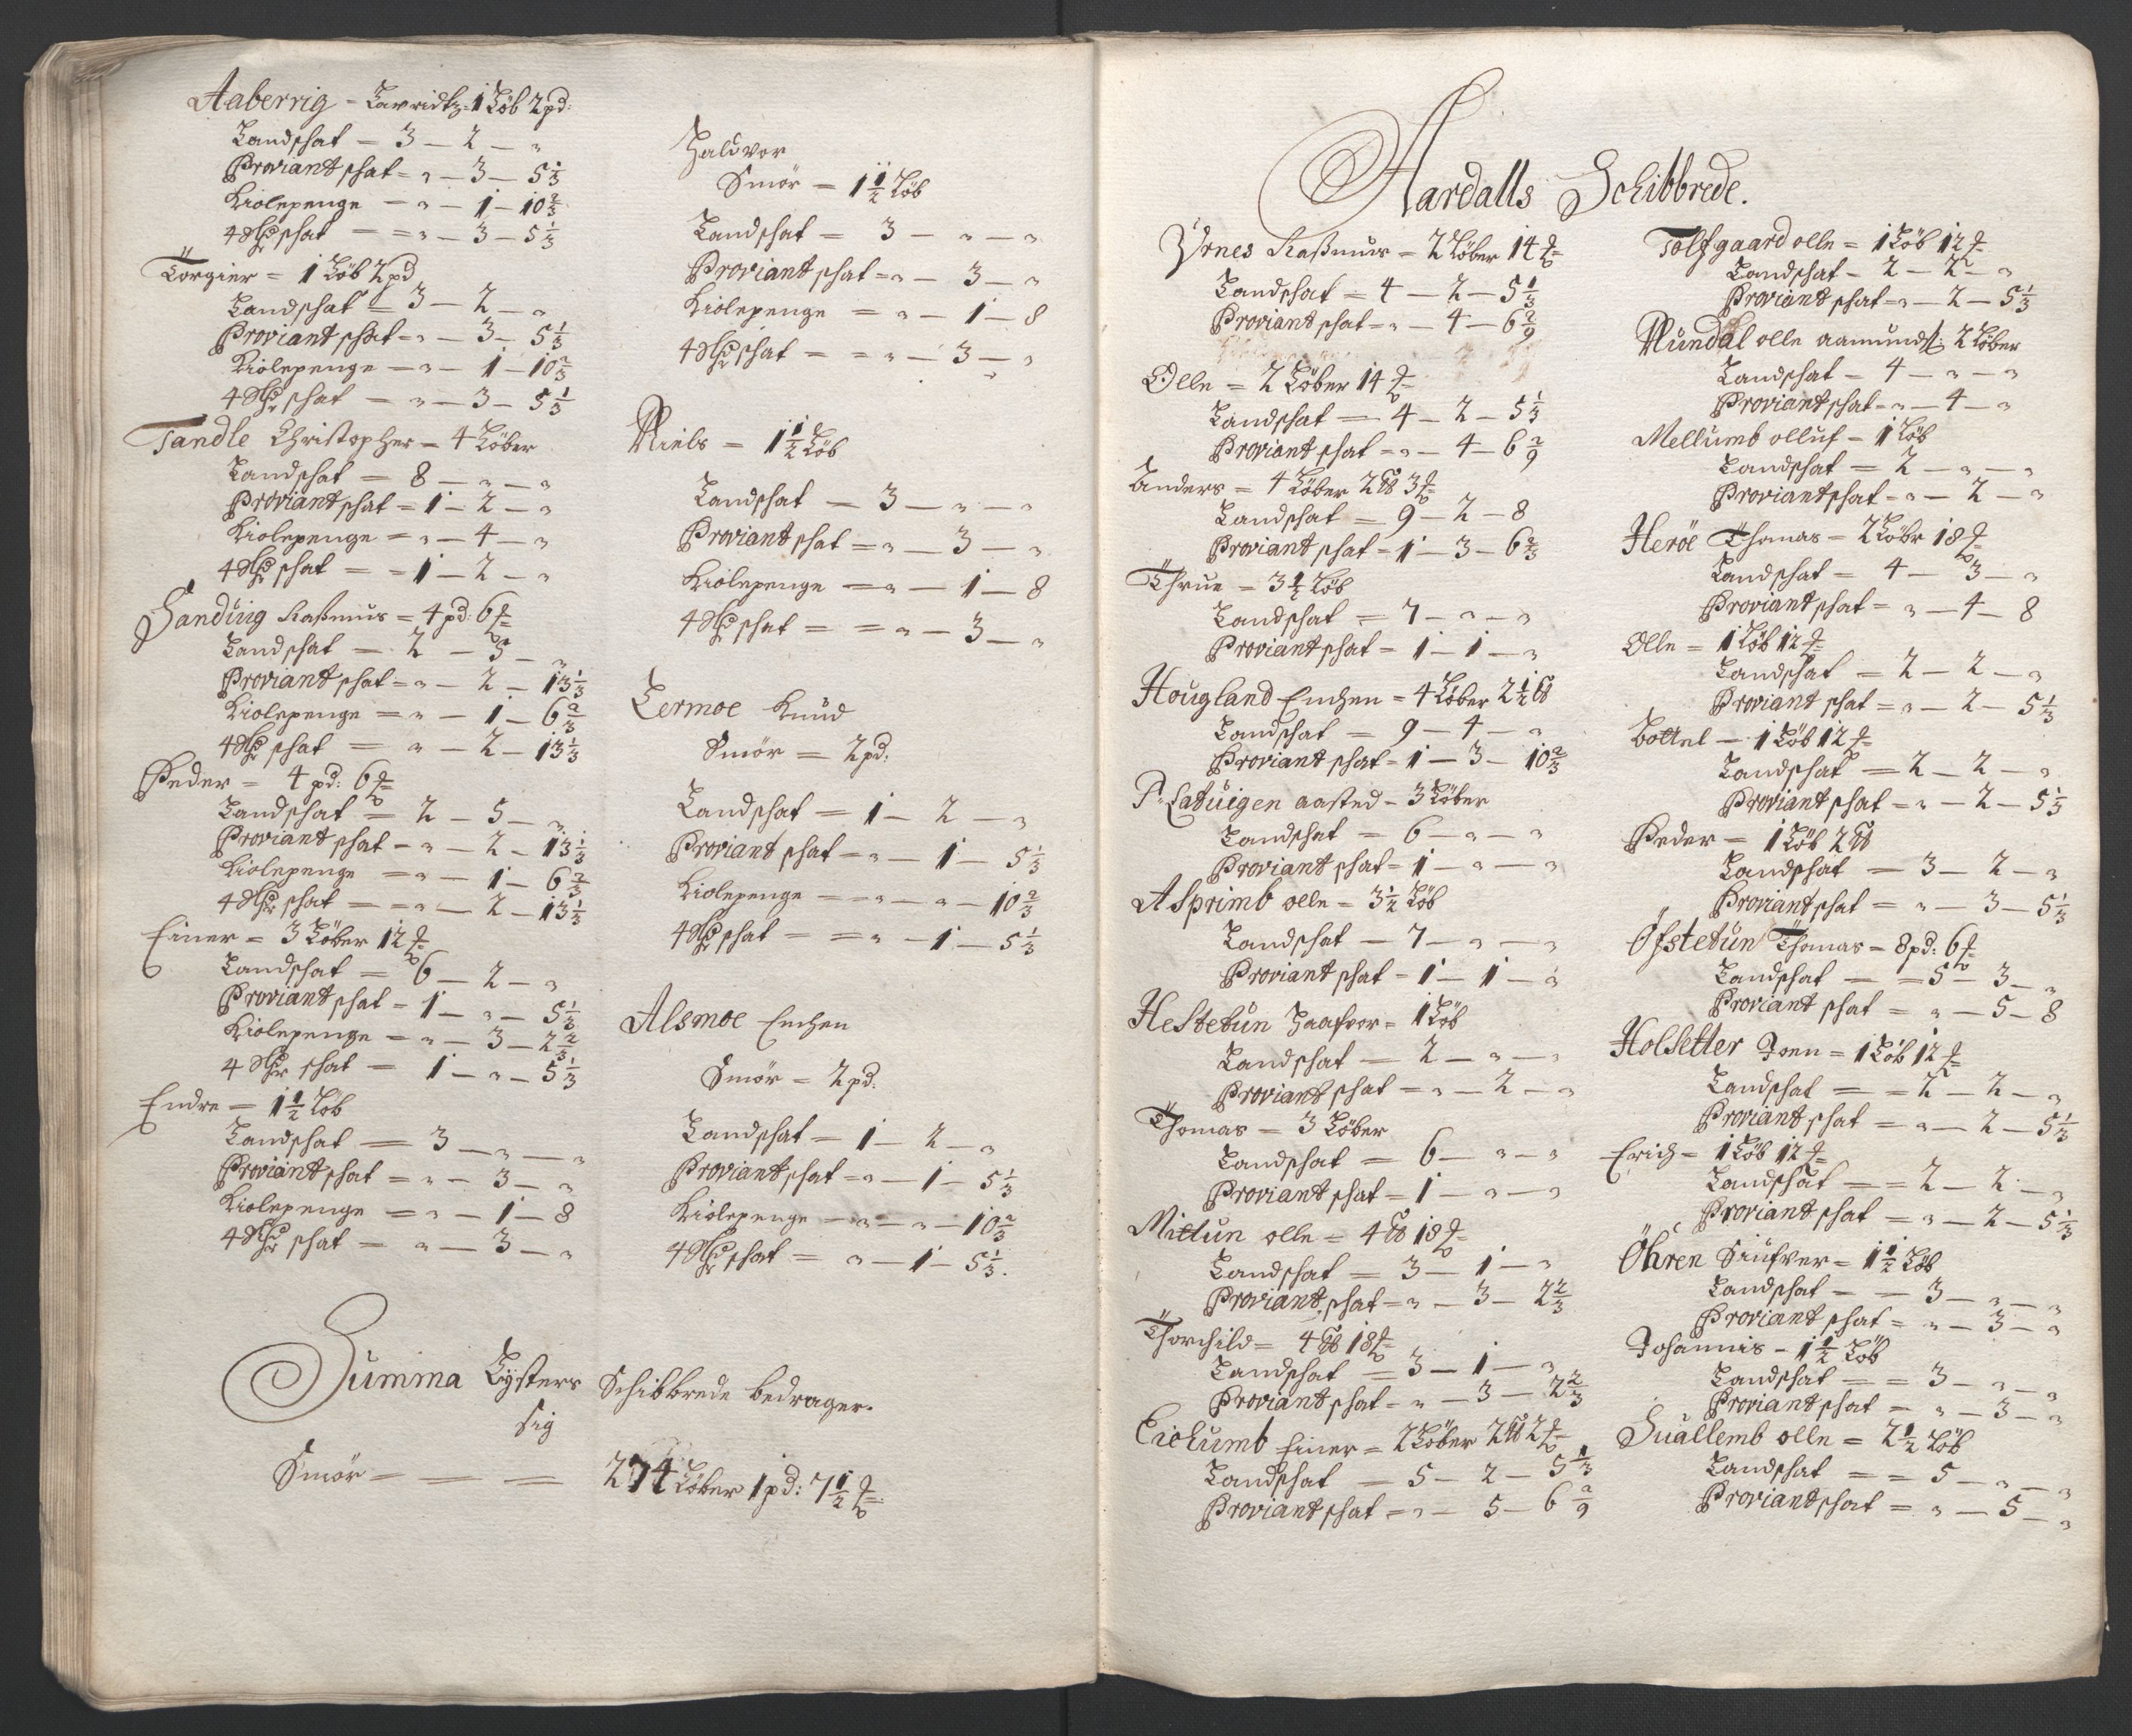 Aaberrig - Lavridtz - 1 Løb 2 pd:
Landschat = 3 — 2 — „
Proviantschat = „ — 3 — 5 1/3
Kiolepenge — „ — 1 — 10 2/3
4 schat = = „ — 3 — 5 1/3
Törgier = 1 Löb 2 pd
Landschat = 3 — 2 — „
Proviantschat = „ — 3 — 5 1/3
Kiolepenge — „ — 1 — 10 2/3
4 schat = „ — 3 — 5 1/3
Tandle Christopher = 4 Löber
Landschat = 8 — „ — „
Proviantschat = 1 — 2 — „
Kiolepenge = „ — 4 — „
4 schat = = 1 — 2 — „
Sanding Rasmus = 4 pd: 6
Landschat = 2 — 5 — „
Proviantschat = „ — 2 — 13 1/3
Kiolepenge = „ — 1 — 6 2/3
4 schat = „ — 2 — 13 1/3
Peder = 4 pd: 6
Landschat = 2 — 5 — „
Proviantschat = „ — 2 — 13 1/3
Kiolepenge = „ — 1 — 6 2/3
4 schat = = „ — 2 — 13 1/3
Einer = 3 Löber 12
Landschat = 6 — 2 — „
Proviantschat = 1 — „ — 5 1/3
Kiolepenge = „ — 3 — 2 2/3
4 schat = 1 — „ — 5 1/3
Endre = 1 1/2 Löb
Landschat = 3 — „ — „
Proviantschat = „ — 3 — „
Kiolepenge = „ — 1 — 8
4 schat = „ — 3 — „
Halduor
Smör = 1 1/2 Löb
Landschat = 3 — „ — „
Proviantschat = „ — 3 — „
Kiolepenge = „ — 1 — 8
4 schat = = „ — 3 — „
Niels = 1 1/2 Löb
Landschat = 3 — „ — „
Proviantschat = „ — 3 — „
Kiolepenge = „ — 1 — 8
4 schat = = „ — 3 — „
Lermoe Knud
Smör = 2 pd:
Landschat = 1 — 2 — „
Proviantschat = „ — 1 — 5 1/3
Kiolepenge = = „ — „ — 10 2/3
4 schat = = „ — 1 — 5 1/3
Alsmoe Enchen
Smör = 2 pd:
Landschat = 1 — 2 — „
Proviantschat = „ — 1 — 5 1/3
Kiolepenge — „ — „ — 10 2/3
4 schat = „ — 1 — 5 1/3.
Summa Lysters Schibbrede bedrager
sig
Smör = — = 274 Löber 1 pd: 7 1/2
Aardalls Schibbrede.
Yrnes Rasmus = 2 Löber 14
Landschat = 4 — 2 — 5 1/3
Proviantschat = „ — 4 — 6 2/9
Olle = 2 Löber 14
Landschat = 4 — 2 — 5 1/3
Proviantschat = „ — 4 — 6 2/9
Anders = 4 Löber 2 3
Landschat = 9 — 2 — 8
Proviantschat = 1 — 3 — 6 2/3
Thrue = 3 1/2 Löb
Landschat = 7 — „ — „
Proviantschat = 1 — 1 — „
Hougland Enchen = 4 Löber 2 1/2
Landschat = 9 — 4 — „
Proviantschat = 1 — 3 — 10 2/3
P: Latuigen aasted = 3 Löber
Landschat = 6 — „ — „
Proviantschat = 1 — „ — „
Asprimb olle = 3 1/2 Löb
Landschat — 7 — „ — „
Proviantschat = 1 — 1 — „
Hestetun Haafvor = 1 Löb
Landschat = 2 — „ — „
Proviantschat = „ — 2 — „
Thomas = 3 Löber
Landschat = 6 — „ — „
Proviantschat = 1 — „ — „
Mittun olle = 4 18
Landschat = 3 — 1 — „
Proviantschat = „ — 3 — 2 2/3
Thorchild = 4 18
Landschat = 3 — 1 — „
Proviantschat = „ — 3 — 2 2/3
Eichumb Einer = 2 Löber 2 2
Landschat = 5 — 2 — 5 1/3
Proviantschat = „ — 5 — 6 2/9
Tolfgaard olle = 1 Löb 12
Landschat — 2 — 2 — „
Proviantschat = „ — 2 — 5 1/3
Nundal olle aamunds: 2 Löber
Landschat = 4 — „ — „
Proviantschat = „ — 4 — „
Mellumb olluf = 1 Löb
Landschat = 2 — „ — „
Proviantschat = „ — 2 — „
Heröe Thomas = 2 Löbr 18
Landschat = 4 — 3 — „
Proviantschat = „ — 4 — 8
Olle = 1 Löb 12
Landschat = 2 — 2 — „
Proviantschat = „ — 2 — 5 1/3
Bottel — 1 Löb 12
Landschat = 2 — 2 — „
Proviantschat = „ — 2 — 5 1/3
Peder = 1 Löb 2
Landschat = 3 — 2 — „
Proviantschat = „ — 3 — 5 1/3
Öfstetun Thomas = 8 pd: 6
Landschat = = 5 — 3 — „
Proviantschat = „ — 5 — 8
Holsetter Joen = 1 Löb 12
Landschat = = 2 — 2 — „
Proviantschat = „ — 2 — 5 1/3
Erich = 1 Löb 12
Landschat = = 2 — 2 — „
Proviantschat = „ — 2 — 5 1/3
Öhren Siufver = 1 1/2 Löb
Landschat = = 3 — „ — „
Proviantschat = „ — 3 — „
Johannis = 1 1/2 Löb
Landschat = = 3 — „ — „
Proviantschat = „ — 3 — „
Suallemb olle = 2 1/2 Löb
Landschat = = 5 — „ — „
Proviantschat = „ — 5 — „